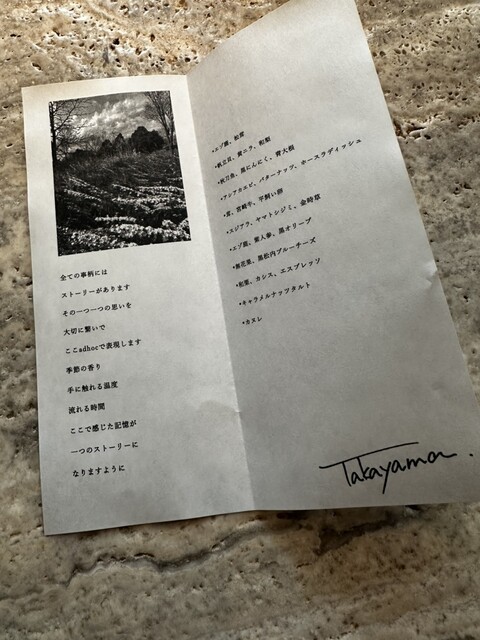 全ての事柄には
ストーリーがあります
その一つ一つの思いを
大切に繋いで
ここadhocで表現します
季節の香り
手に触れる温度
流れる時間
ここで感じた記憶が
一つのストーリーに
なりますように
•エゾ鹿、和蕾
•帆立貝、黄ニラ、和梨
•秋刀魚、黒にんにく、青大根
•アシアカエビ、バターナッツ、ホースラディッシュ
•茸、宮崎牛、平飼い卵
•スジアラ、ヤマトシジミ、金時草
•エゾ鹿、紫人参、黒オリーブ
•無花果、黒松内ブルーチーズ
•和栗、カシス、エスプレッソ
•キャラメルナッツタルト
•カヌレ
Takayama.